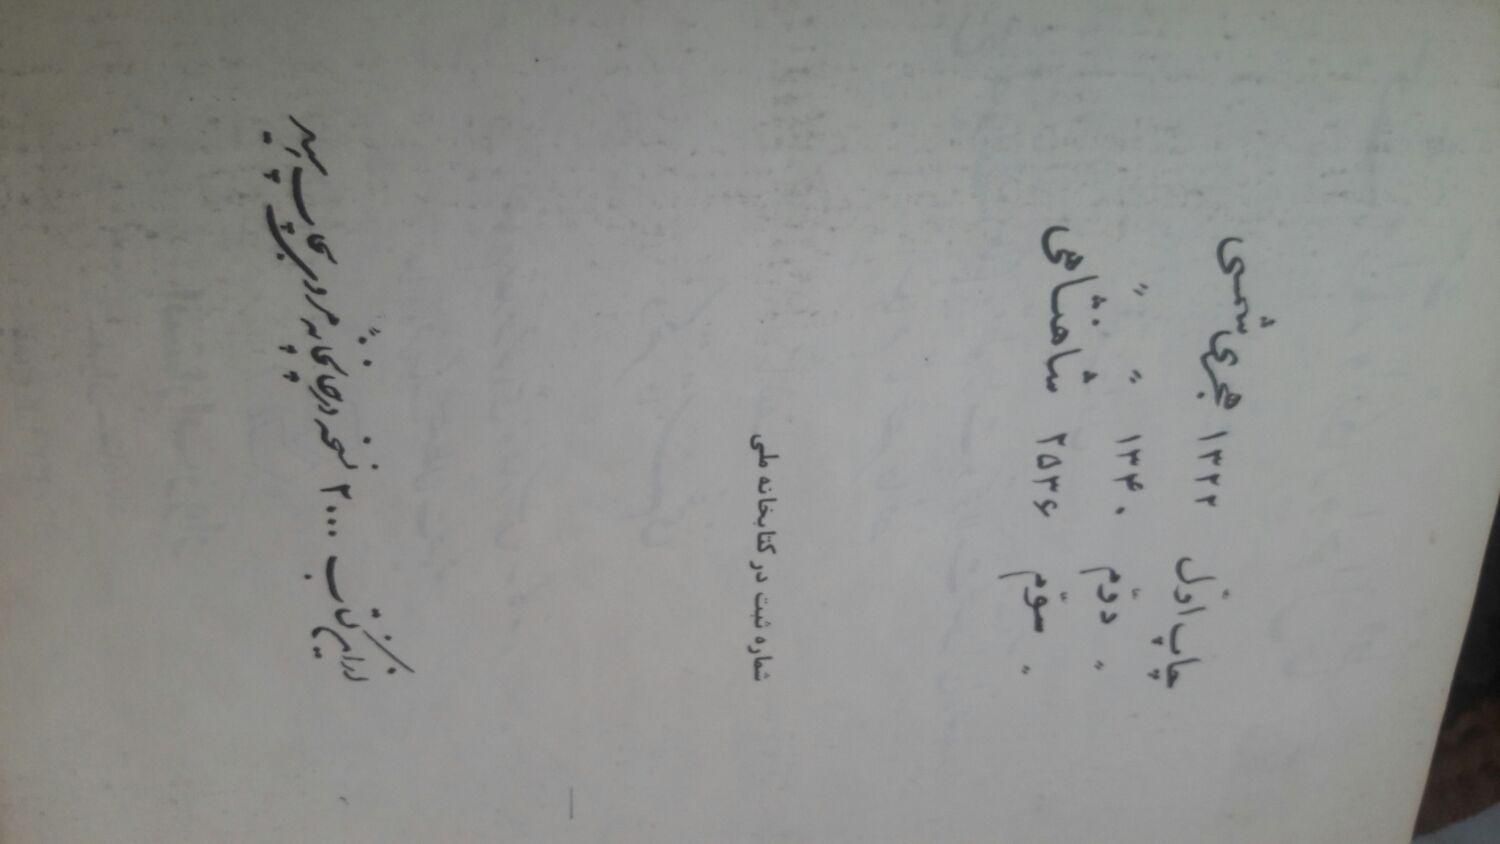 چاپ اوّل ۱۳۲۲ هجری شمسی
〃 دوّم ۱۳۴۰ 〃 〃
〃 سوّم ۲۵۳۶ شاهنشاهی
شماره ثبت در کتابخانه ملی
از این کتاب ۲۰۰۰ نسخه در چاپخانه مروی بچاپ رسید